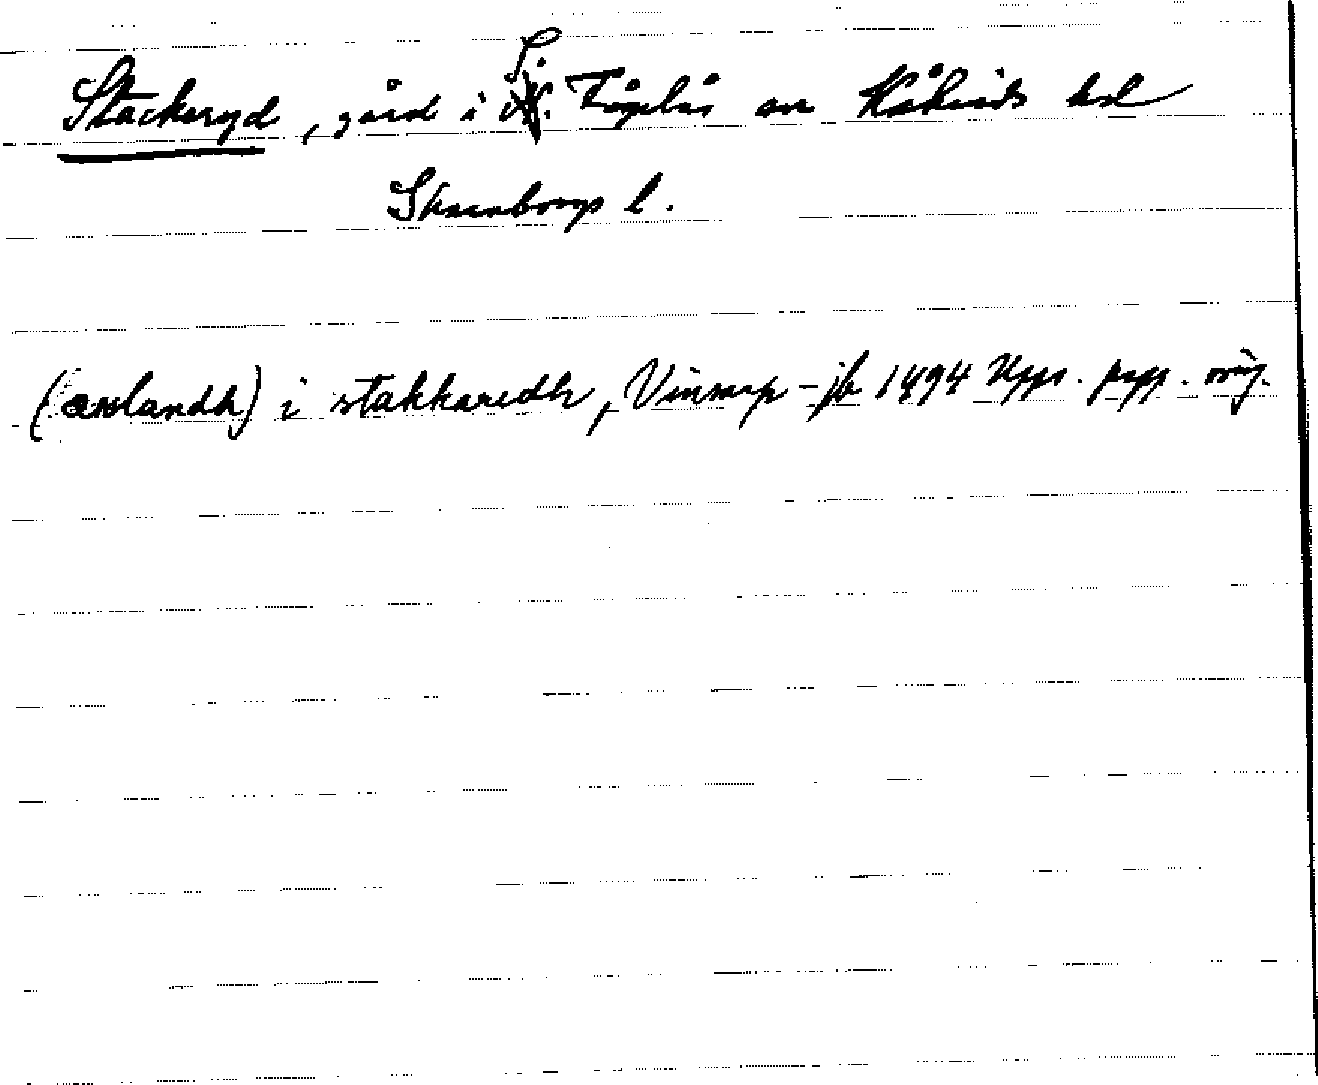 Stackeryd, gård i S. Fågelås sn Kåkinds hd
Skaraborgs l.
(ærlandh) i stakkaredh, Vinsarp-jb 1494 Upps. papp. orig.